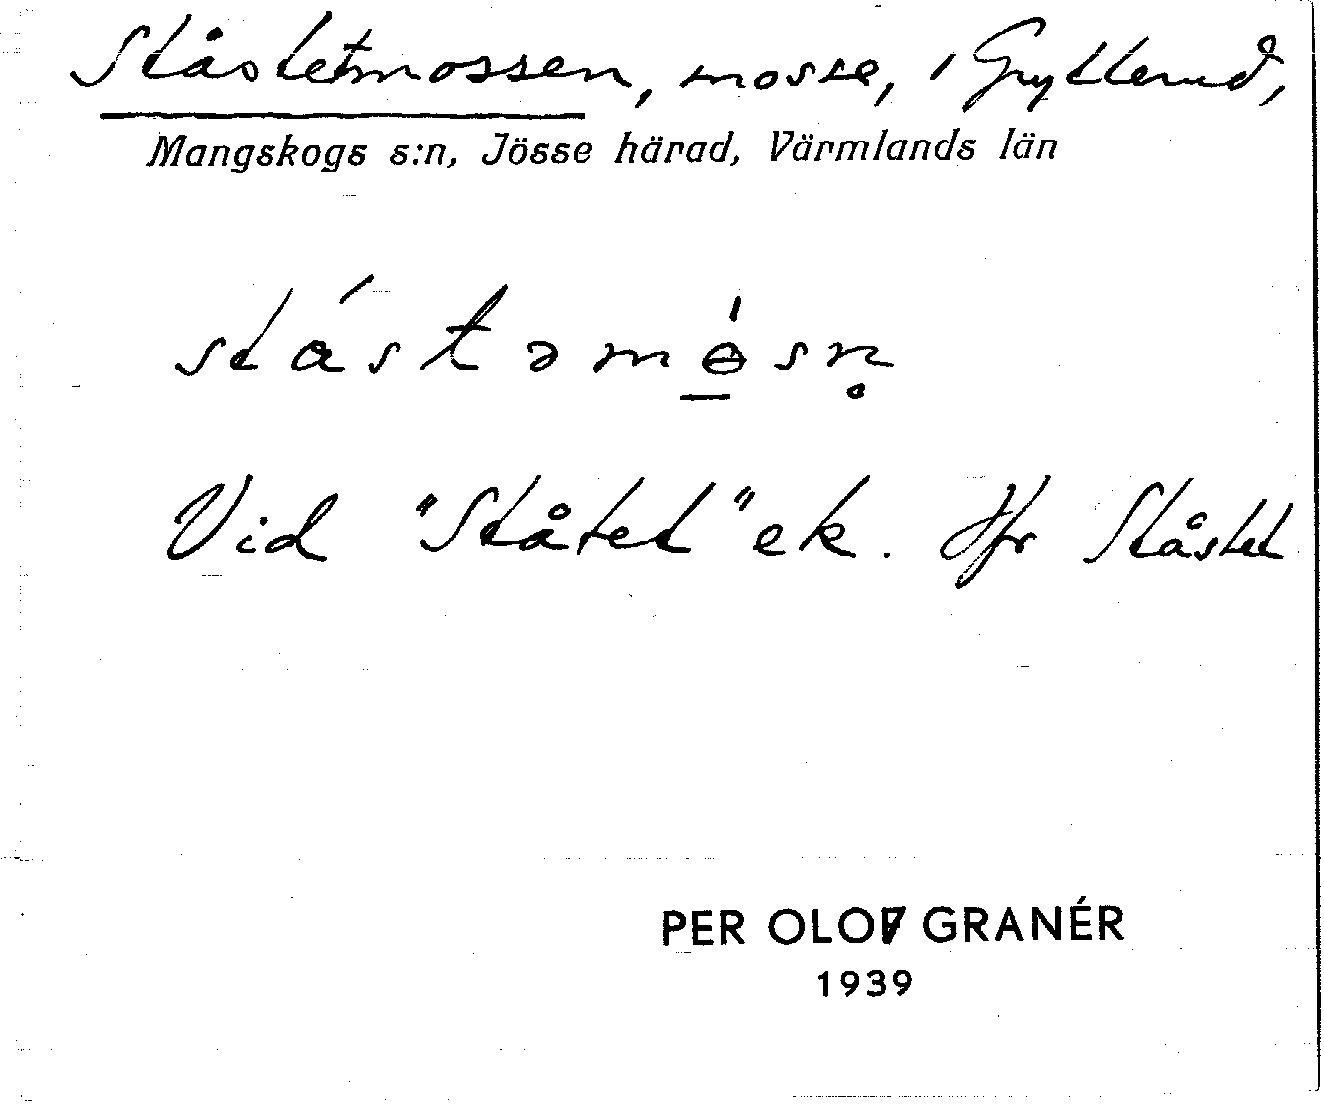 Ståstetmossen, mosse, i Grytterud,
Mangskogs s:n, Jösse härad, Värmlands län
stástəmòsn̥
Vid "Ståtet" ek. Jfr Ståstet
PER OLOF GRANÉR
1939